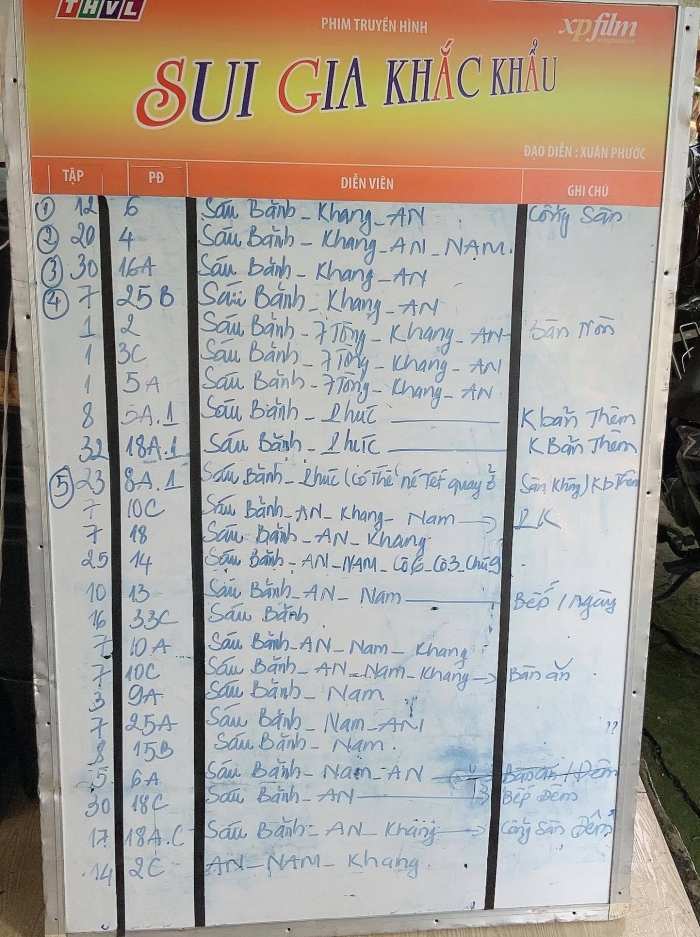 THVL
PHIM TRUYỀN HÌNH
xpfilm
SUI GIA KHẮC KHẨU
ĐẠO DIỄN : XUÂN PHƯỚC
TẬP PĐ DIỄN VIÊN GHI CHÚ
① 12 6 Sáu Bảnh - Khang - AN Cổng Sân
② 20 4 Sáu Bảnh - Khang - AN - NAM.
③ 30 16A Sáu Bảnh - Khang - AN
④ 7 25B Sáu Bảnh - Khang - AN
1 2 Sáu Bảnh - 7 Tòng - Khang - AN Bàn
1 3C Sáu Bảnh - 7 Tòng - Khang - AN
1 5A Sáu Bảnh - 7 Tòng - Khang - AN
8 5A.1 Sáu Bảnh - Phúc K bắn Thêm
32 18A.1 Sáu Bảnh - Phúc K Bắn Thêm
⑤ 23 8A.1 Sáu Bảnh - Phúc (có Thể né Tét quay ở Sân
7 10C Sáu Bảnh - AN - Khang - Nam → PK
7 18 Sáu Bảnh - AN - Khang
25 14 Sáu Bảnh - AN - NAM - Cô 6 - Cô 3 - Chú 9
10 13 Sáu Bảnh - AN - Nam Bếp / ngày
16 33C Sáu Bảnh
7 10A Sáu Bảnh - AN - Nam - Khang
7 10C Sáu Bảnh - AN - Nam - Khang → Bàn ăn
3 9A Sáu Bảnh - Nam
7 25A Sáu Bảnh - Nam - AN
8 15B Sáu Bảnh - Nam.
5 6A Sáu Bảnh - Nam - AN Bàn ăn / Đêm
30 18C Sáu Bảnh - AN Bếp Đêm
17 18A.C Sáu Bảnh - AN - Khang → Cổng Sân Đêm
14 2C AN - NAM - Khang.